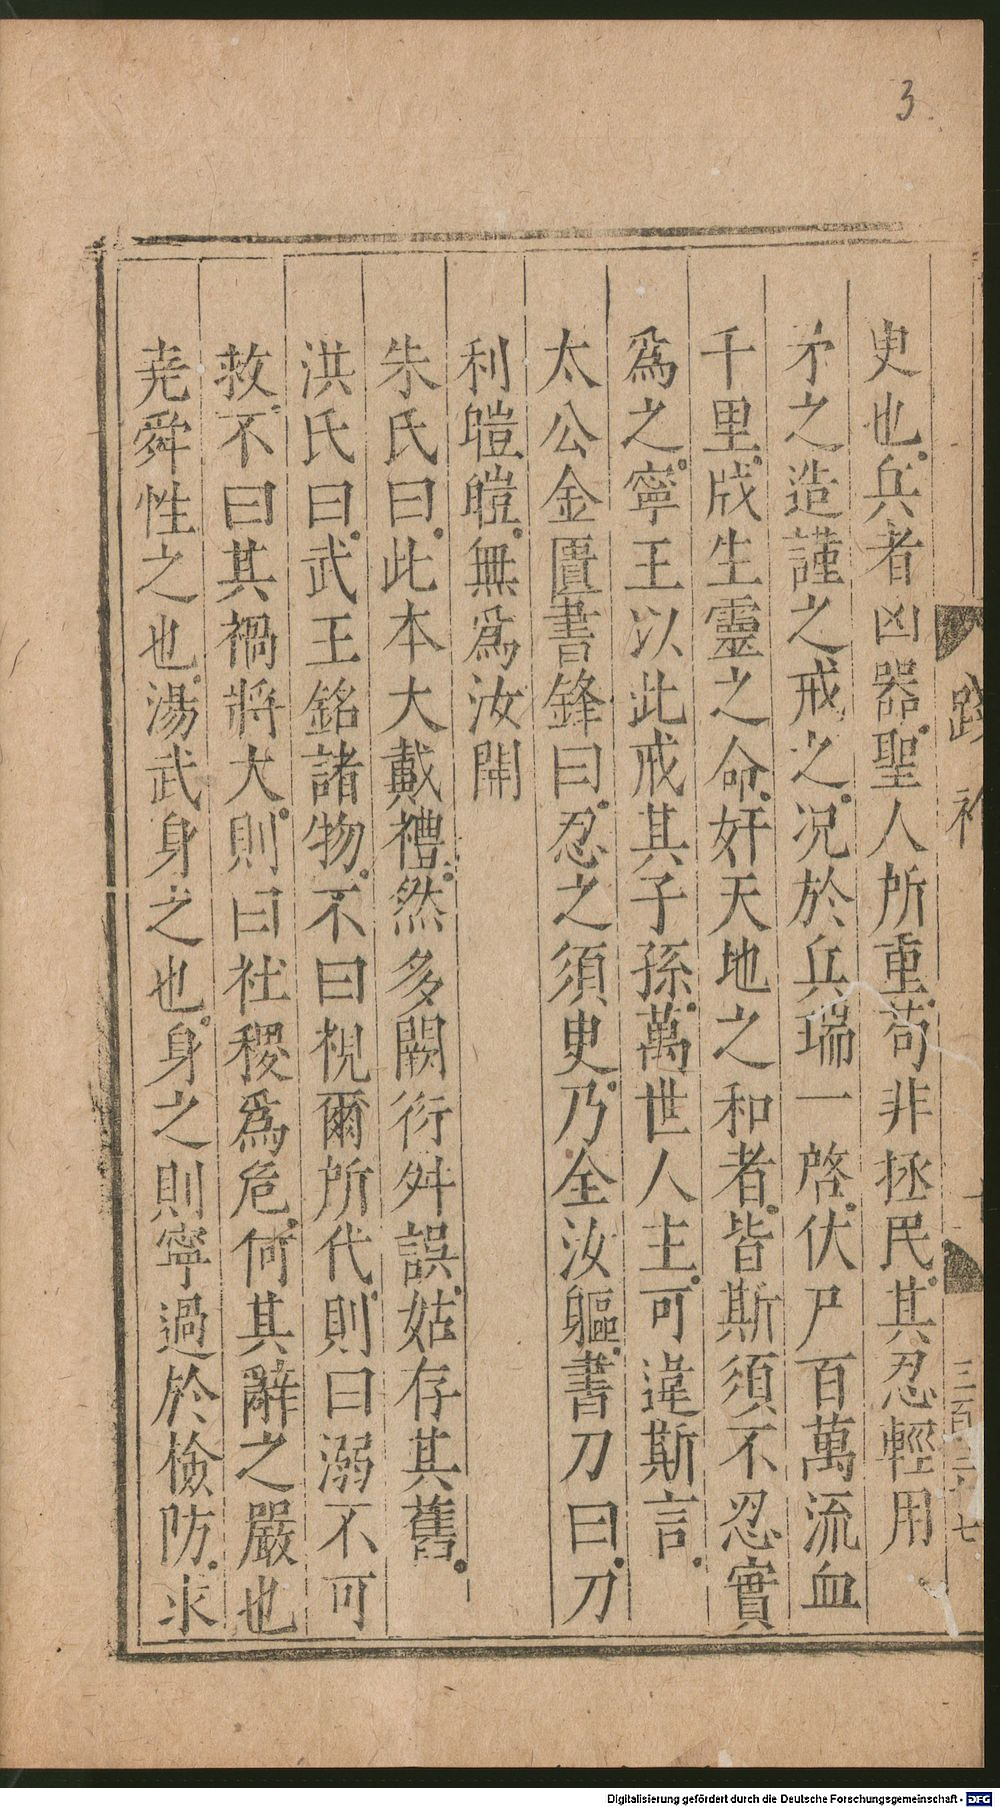 3
史也兵者凶器聖人所重苟非拯民其忍輕用
矛之造謹之戒之况於兵瑞一啓伏尸百萬流血
千里戕生靈之命奸天地之和者皆斯須不忍實
爲之寧王以此戒其子孫萬世人主可違斯言
太公金匱書鋒曰忍之須臾乃全汝軀書刀曰刀
利皚皚無爲汝開
朱氏曰此本大戴禮然多闕衍舛誤姑存其舊
洪氏曰武王銘諸物不曰視爾所代則曰溺不可
救不曰其禍將大則曰社稷爲危何其辭之嚴也
尭舜性之也湯武身之也身之則寧過於檢防求
Digitalisierung gefördert durch die Deutsche Forschungsgemeinschaft - DFG